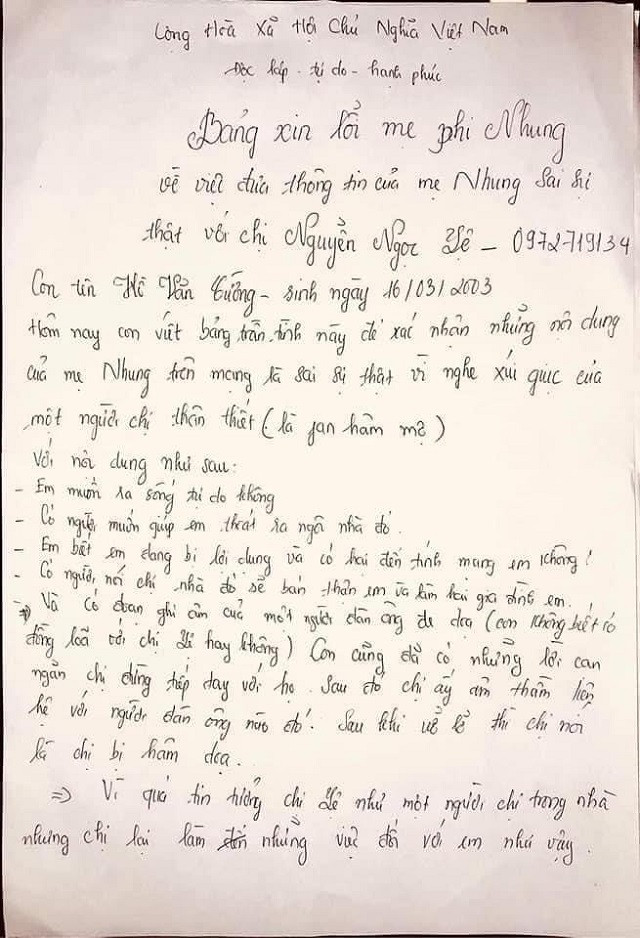 Cộng Hoà Xã Hội Chủ Nghĩa Việt Nam
Độc lập - tự do - hạnh phúc
Bảng xin lỗi mẹ phi Nhung
về việc đưa thông tin của mẹ Nhung sai sự
thật với chị Nguyễn Ngọc Lệ - 0972719134
Con tên Hồ Văn Cường - sinh ngày 16/03/2003
Hôm nay con viết bảng trần tình này để xác nhận những nội dung
của mẹ Nhung trên mạng là sai sự thật vì nghe xúi giục của
một người chị thân thiết (là fan hâm mộ)
Với nội dung như sau:
- Em muốn ra sống tự do không
- Có người muốn giúp em thoát ra ngôi nhà đó.
- Em biết em đang bị lợi dụng và có hại đến tính mạng em không!
- Có người nói chị nhà đó sẽ bán thân em và làm hại gia đình em.
=> Và có đoạn ghi âm của một người đàn ông đe doạ (con không biết có
đồng loã với chị Lệ hay không) Con cũng đã có những lời can
ngăn chị đừng tiếp tay với họ. Sau đó chị ấy âm thầm liên
hệ với người đàn ông nào đó. Sau khi vỡ lẽ thì chị nói
là chị bị hăm dọa.
=> Vì quá tin tưởng chị Lệ như một người chị trong nhà
nhưng chị lại làm những việc đối với em như vậy.